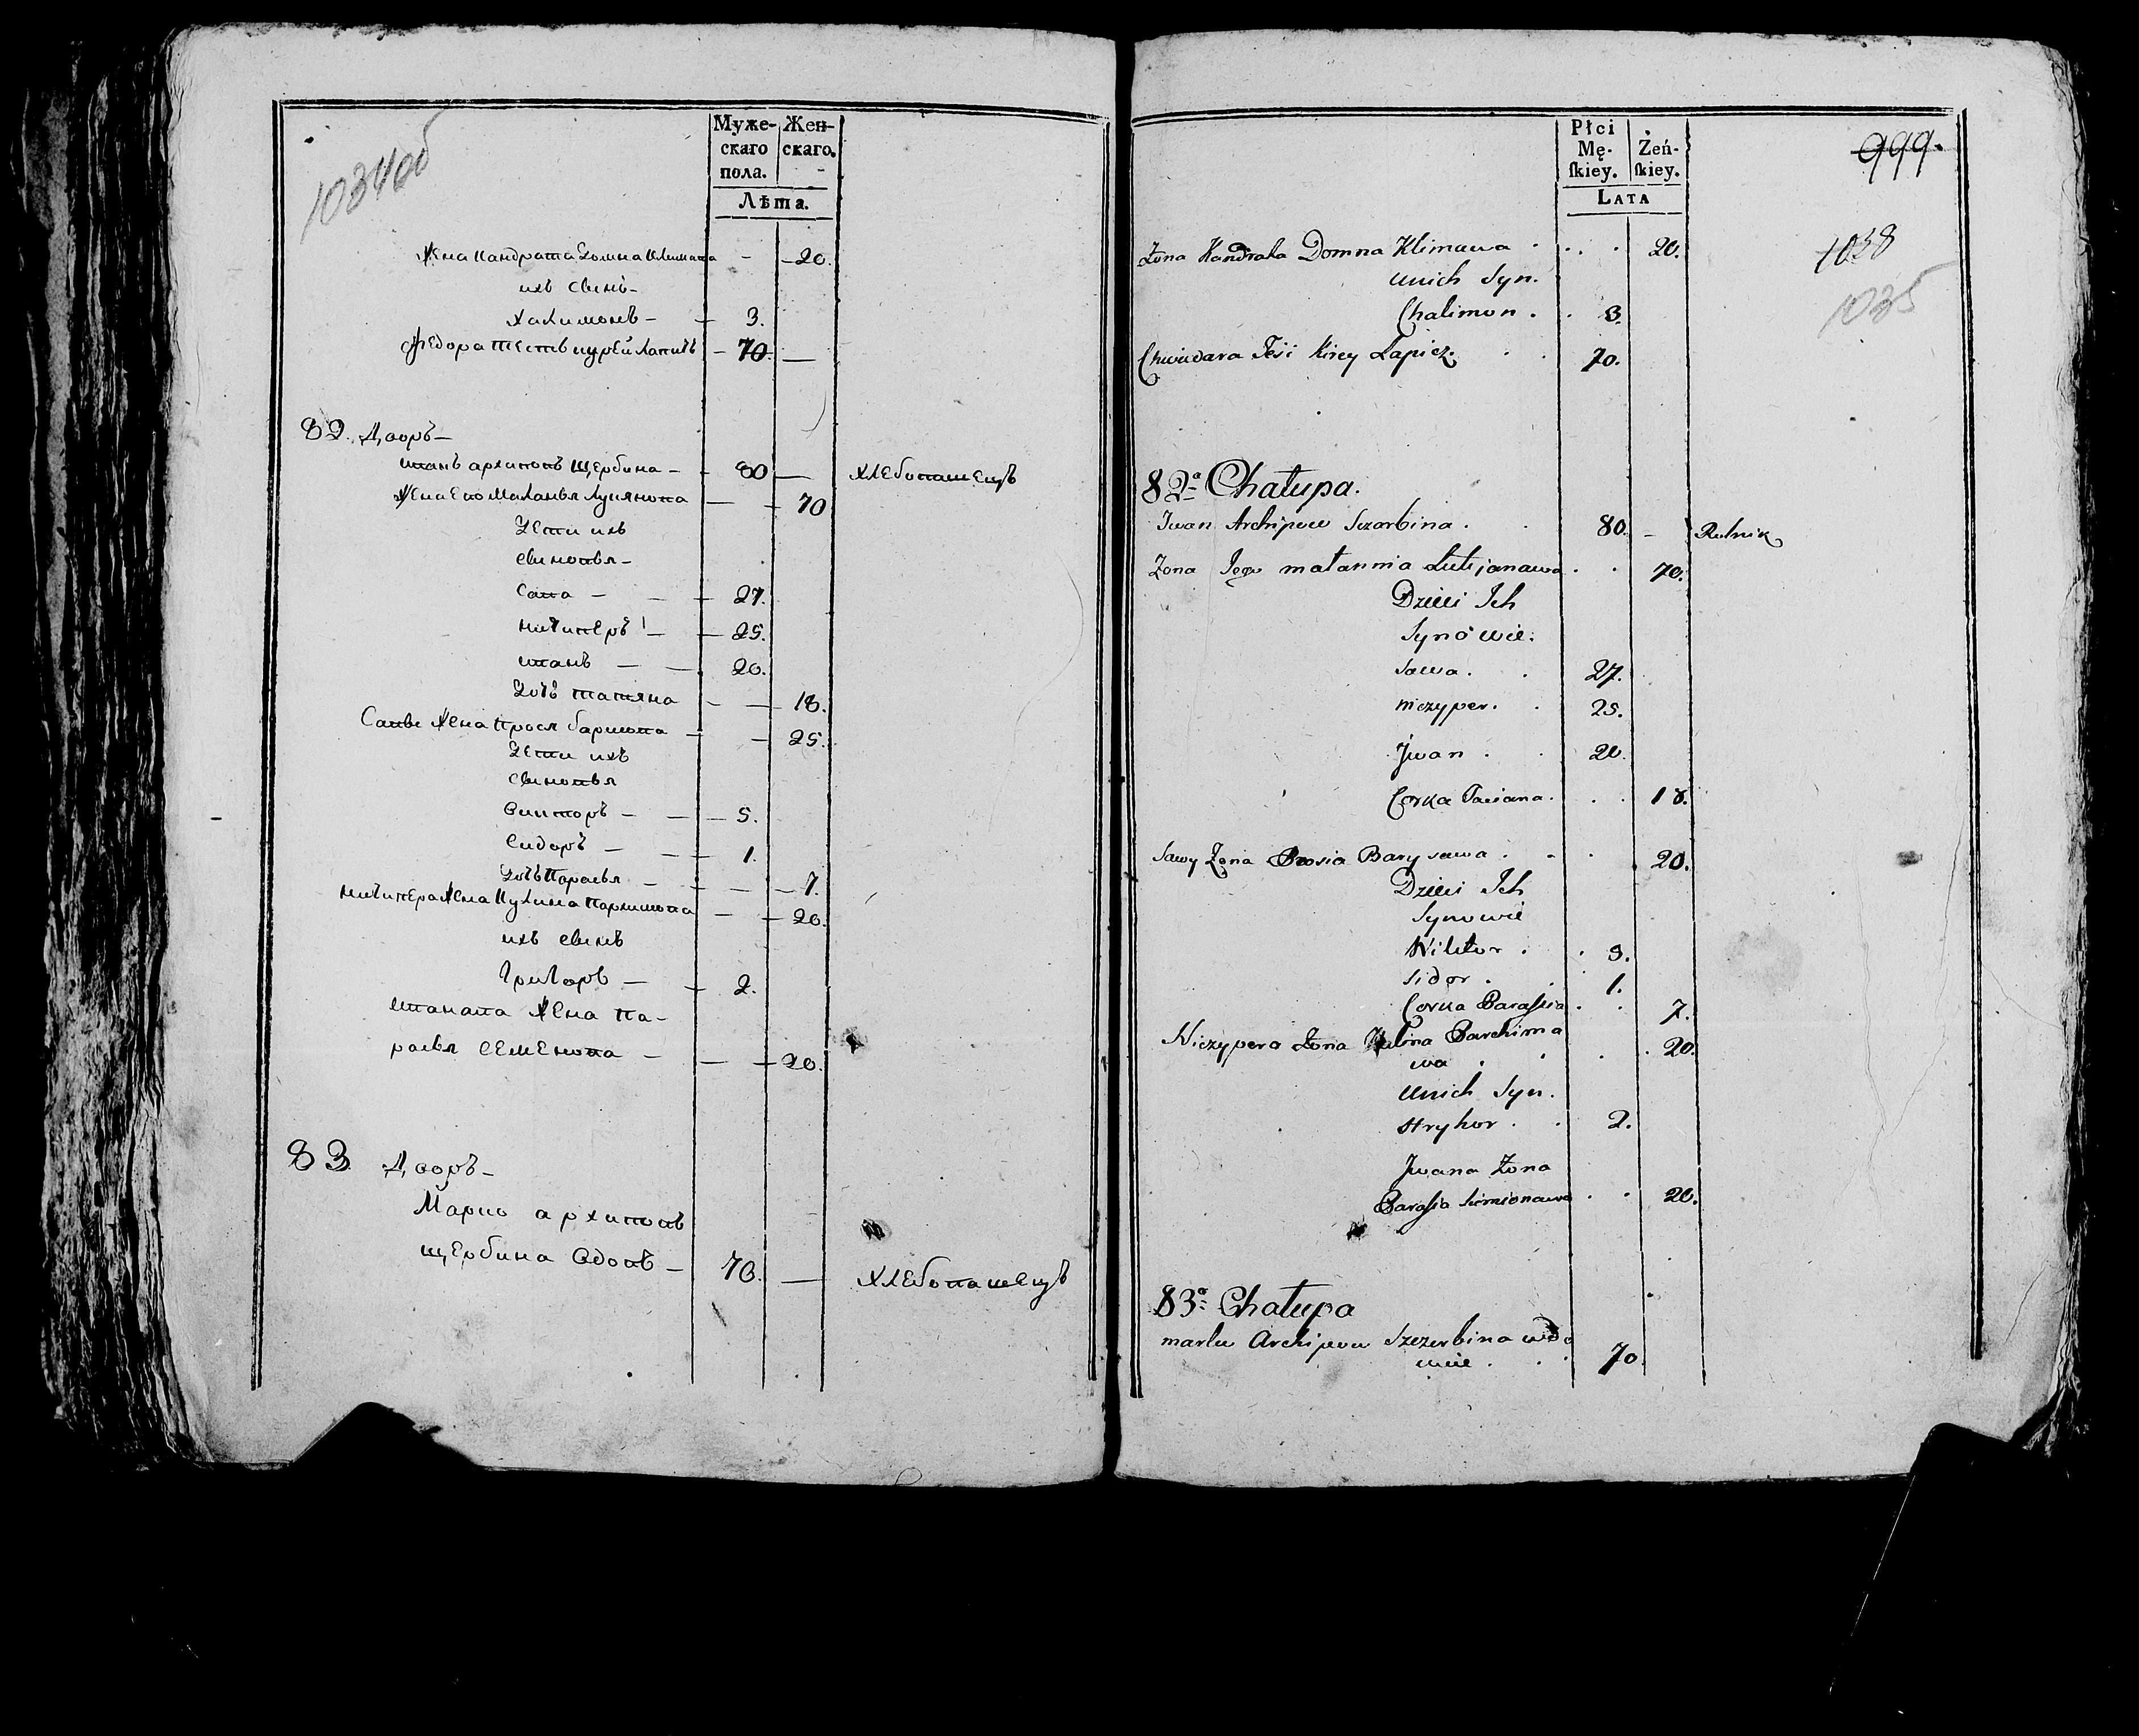 1034 об
Муже-
скаго
пола.
Жен-
скаго.
Лѣта.
жена Кандрата Домна Климава - -20.
ихъ сынъ-
Халимонъ- - 3.
Федора тесть Кирей Лапичъ - 70 -
82. Дворъ-
иванъ архиповъ щербина - 80 - хлебопашецъ
жена его Маланья Лукянова - - 70
дети ихъ
сыновья-
Сава - - - 27.
ничиперъ - - 25.
иванъ - - 20.
дочь татяна - - 18.
Савы жена Прося барисова - - 25.
дети ихъ
сыновья
Виктор - - - 5.
Сидоръ - - - 1.
дочь Парасья - - - - 7.
ничипера жена Кулина Пархимова - - 20.
ихъ сынъ
Григоръ - - 2.
ивана жена па-
расья семенова - - - 20.
83 Дворъ-
Марко архиповъ
щербина вдовъ - 70. - хлебопашецъ
Płci
Mę-
ſkiey.
Żeń-
ſkiey.
LATA
999.
1038
1035
Żona Kandrata Domna Klimawa . . . 20.
Unich Syn.
Chalimon . . 3.
Chwiedara Teść Kirey Łapicz. . . 70.
82a Chałupa.
Jwan Archipow Sczarbina . . 80. - Rolnik
Żona Jego małannia Łukjanawa . . 70.
Dzieci Ich
Synówie.
Sawa . . 27.
niczyper. . 25.
Jwan . . 20.
Corka Taciana. . . 18.
Sawy Żona Prosia Barysawa . . . . 20.
Dzieci Ich
Synowie
Wiktor . . 5.
Sidor . . 1.
Corka Paraſsia . . 7.
Niczypera Żona Kulina Parchima
wa . . . . 20.
Unich Syn.
Hryhor . . 2.
Jwana Żona
Paraſia Siemionawa . . 20.
83a Chałupa
marko Archipow Szczerbina wdo
wiec . . . 70.